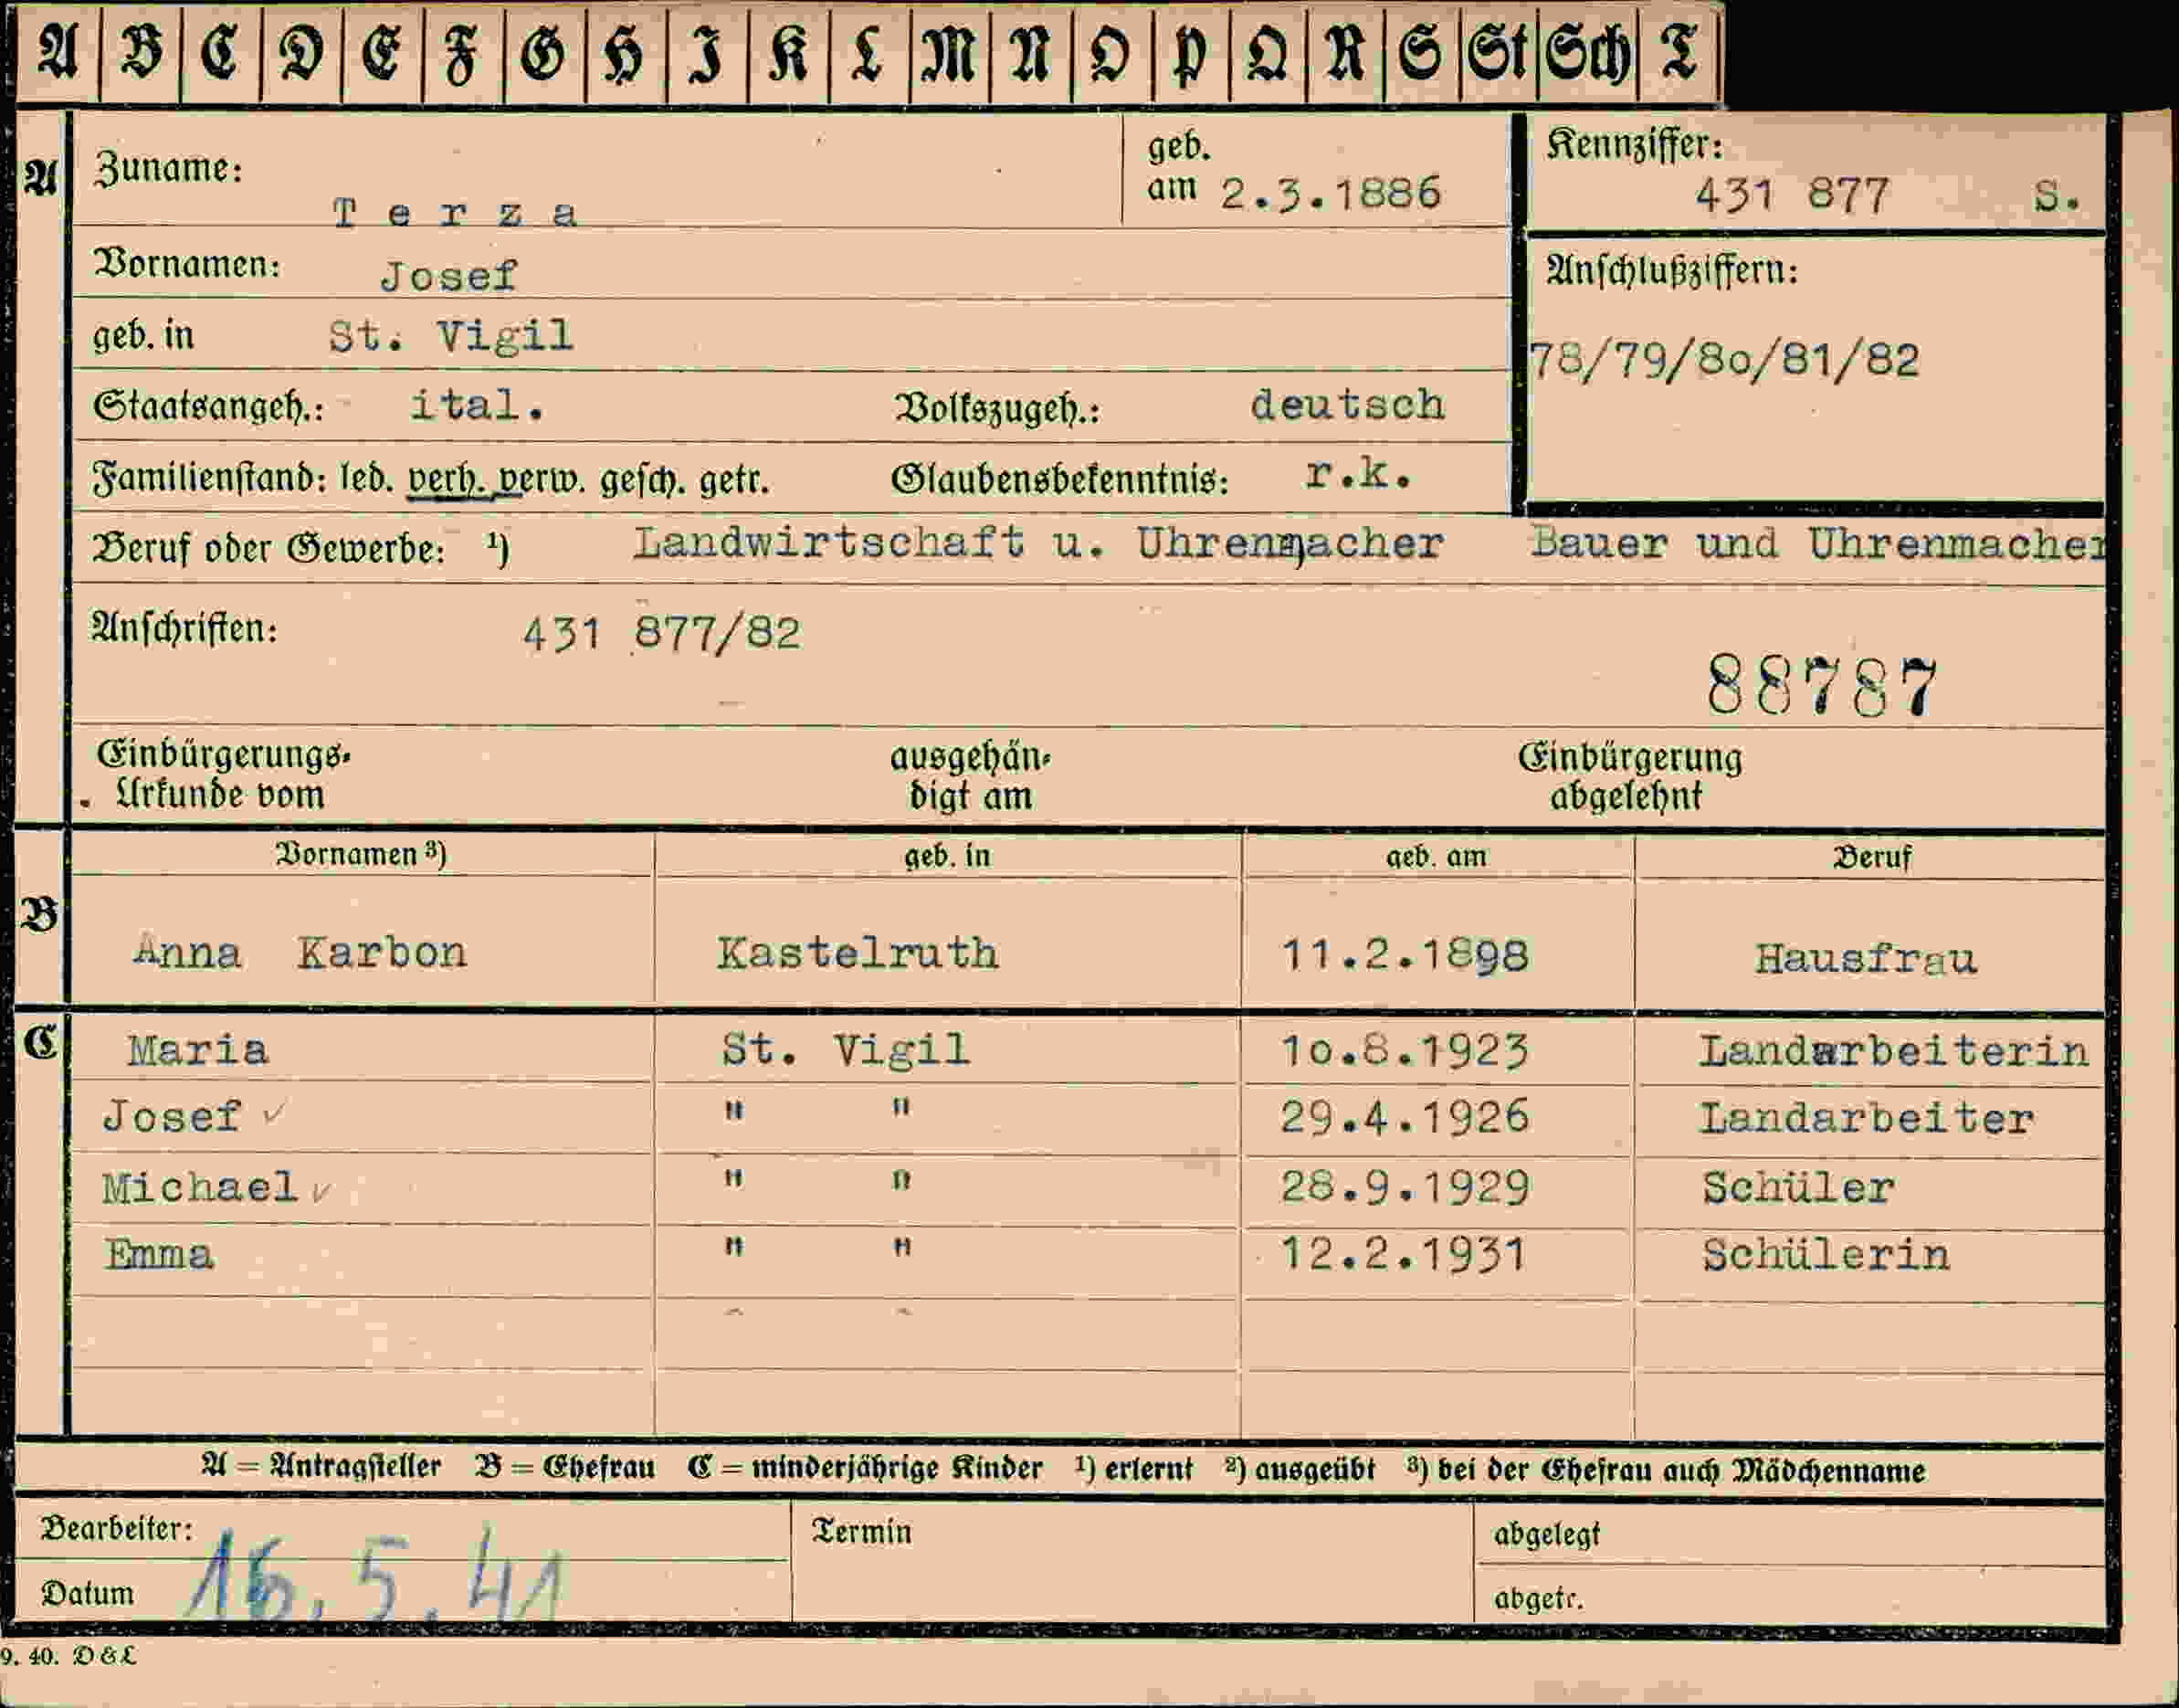 A B C D E F G H I K L M N O P Q R S St Sch T
A Zuname: Terza geb. am 2.3.1886 Kennziffer: 431 877 S.
Vornamen: Josef Anschlußziffern:
geb. in St. Vigil 78/79/80/81/82
Staatsangeh.: ital. Volkszugeh.: deutsch
Familienstand: led. verh. verw. gesch. getr. Glaubensbekenntnis: r.k.
Beruf oder Gewerbe: ¹) Landwirtschaft u. Uhrenmacher Bauer und Uhrenmacher
Anschriften: 431 877/82
88787
Einbürgerungs- ausgehän- Einbürgerung
Urkunde vom digt am abgelehnt
Vornamen ³) geb. in geb. am Beruf
B Anna Karbon Kastelruth 11.2.1898 Hausfrau
C Maria St. Vigil 10.8.1923 Landarbeiterin
Josef ✓ " " 29.4.1926 Landarbeiter
Michael ✓ " " 28.9.1929 Schüler
Emma " " 12.2.1931 Schülerin
A = Antragsteller B = Ehefrau C = minderjährige Kinder ¹) erlernt ²) ausgeübt ³) bei der Ehefrau auch Mädchenname
Bearbeiter: Termin abgelegt
Datum 16.5.41 abgetr.
9. 40. D & L